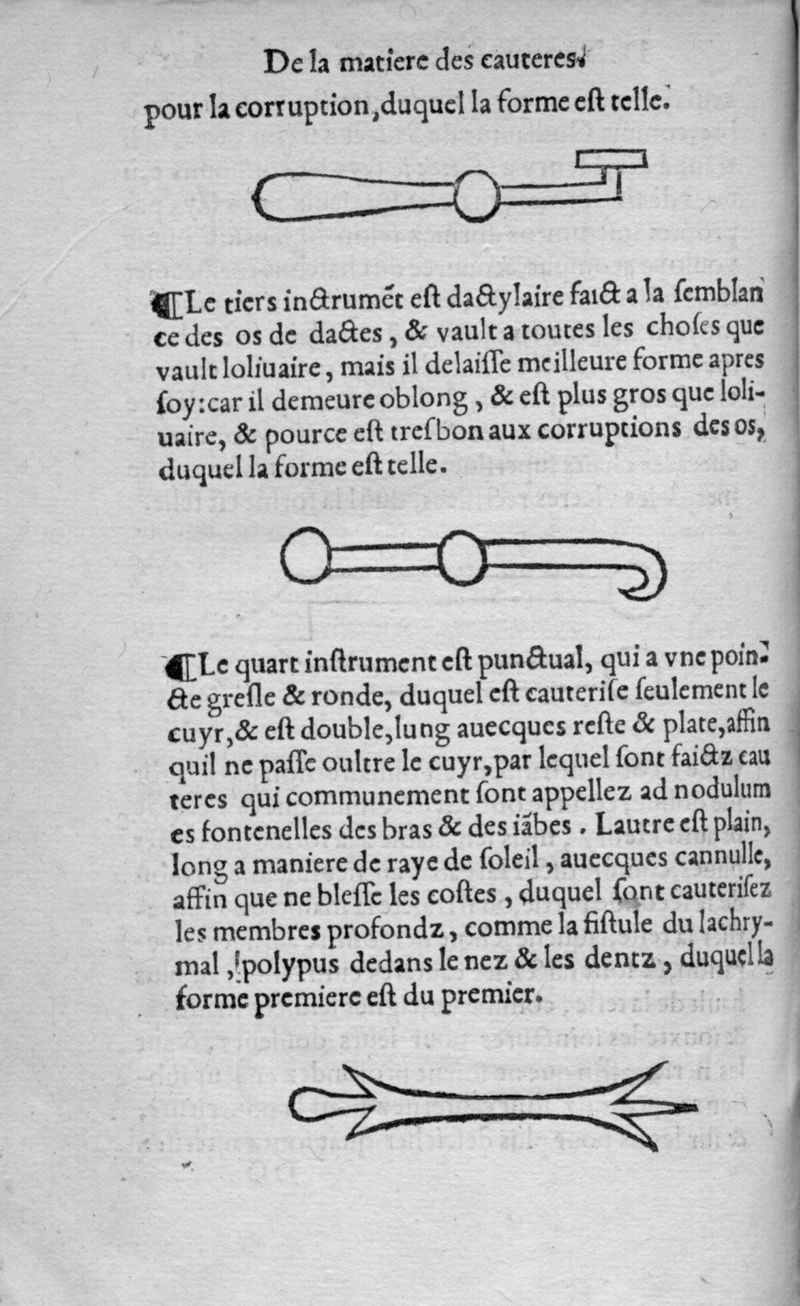 De la matiere des cauteres.
pour la corruption, duquel la forme eſt telle.
¶Le tiers inctrumẽt eſt dactylaire faict a la ſemblan
ce des os de dactes, & vault a toutes les choſes que
vault loliuaire, mais il delaiſſe meilleure forme apres
ſoy: car il demeure oblong, & eſt plus gros que loli-
uaire, & pource eſt treſbon aux corruptions des os,
duquel la forme eſt telle.
¶Le quart inſtrument eſt punctual, qui a vne poin-
cte greſle & ronde, duquel eſt cauteriſe ſeulement le
cuyr, & eſt double, lung auecques reſte & plate, affin
quil ne paſſe oultre le cuyr, par lequel ſont faictz cau
teres qui communement ſont appellez ad nodulum
es fontenelles des bras & des iãbes. Lautre eſt plain,
long a maniere de raye de ſoleil, auecques cannulle,
affin que ne bleſſe les coſtes, duquel ſont cauteriſez
les membres profondz, comme la fiſtule du lachry-
mal, polypus dedans le nez & les dentz, duquel la
forme premiere eſt du premier.